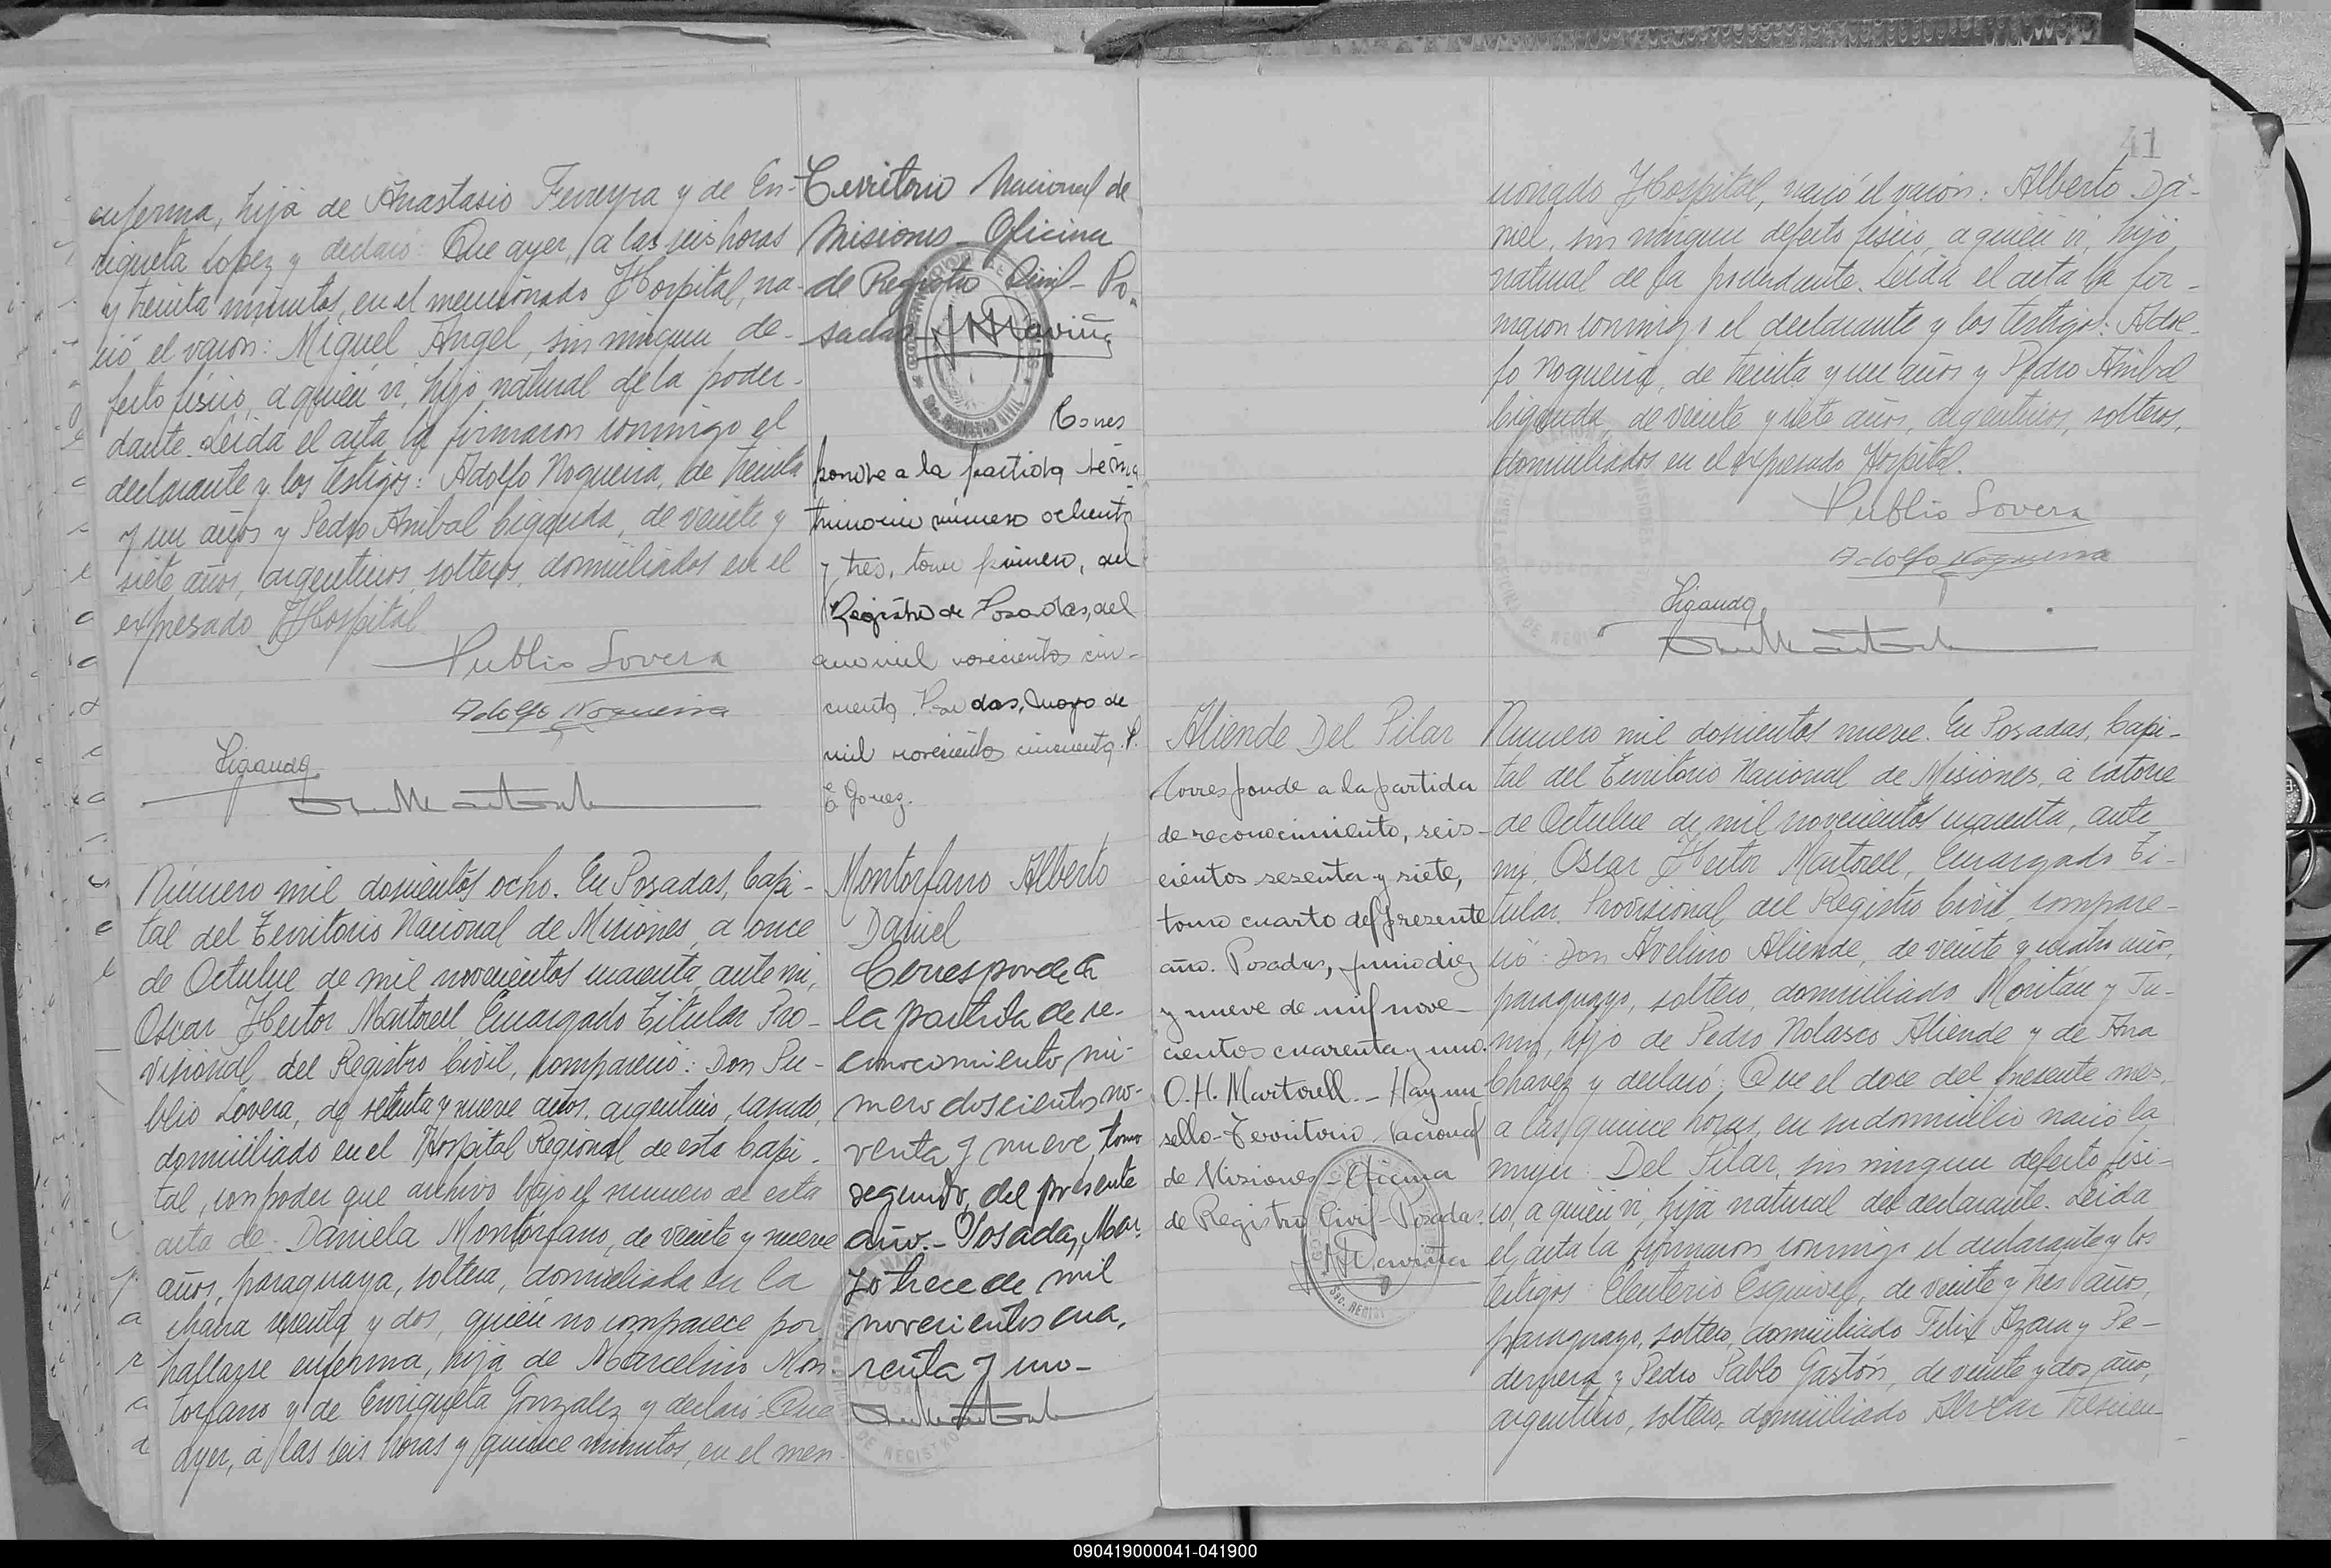 enferma, hija de Anastasio Ferreyra y de En-
riqueta Lopez y declaró: Que ayer, a las seis horas
y treinta minutos, en el mencionado Hospital, na-
ció el varon: Miguel Angel, sin ningun de-
fecto físico, a quién ví, hijo natural de la poder-
dante. Leida el acta la firmaron conmigo el
declarante y los testigos: Adolfo Nogueira, de treinta
y un años y Pedro Anibal Ligauda, de veinte y
siete años, argentinos, solteros, domiciliados en el
expresado Hospital
Publio Lovera
Adolfo Nogueira
Ligauda
Número mil doscientos ocho. En Posadas, Capi-
tal del Territorio Nacional de Misiones, a once
de Octubre de mil novecientos cuarenta, ante mi,
Oscar Hector Martorell, Encargado Titular Pro-
visional del Registro Civil, compareció: Don Pu-
blio Lovera, de setenta y nueve años, argentino, casado,
domiciliado en el Hospital Regional de esta Capi-
tal, con poder que archivo bajo el numero de esta
acta de: Daniela Montorfano, de veinte y nueve
años, paraguaya, soltera, domiciliada en la
chacra y dos, quién no comparece por
hallarse enferma, hija de Marcelino Mon-
torfano y de Enriqueta Gonzalez y declaró: Que
ayer, a las seis horas y quince minutos, en el men-
Territorio Nacional de
Misiones - Oficina
de Registro Civil - Po-
sadas
Corres
ponde a la partida
matrimonio número ochenta
y tres, tomo primero, del
Registro de Posadas, del
año mil novecientos cin-
cuenta. Posadas, Mayo de
mil novecientos cincuenta.
Montorfano Alberto
Daniel
Corresponde a
la partida de re-
conocimiento, nú-
mero doscientos no-
venta y nueve, tomo
segundo, del presente
año. - Posadas, Mar-
zo trece de mil
novecientos cua-
renta y uno -
41
cionado Hospital, nació el varon: Alberto Da-
niel, sin ningun defecto físico, a quién ví, hijo
natural de la poderdante. Leida el acta la fir-
maron conmigo el declarante y los testigos: Adol-
fo Nogueira, de treinta y un años y Pedro Anibal
Ligauda, de veinte y siete años, argentinos, solteros,
domiciliados en el expresado Hospital.
Publio Lovera
Adolfo Nogueira
Ligauda
Aliende Del Pilar
Corresponde a la partida
de reconocimiento, seis-
cientos sesenta y siete,
tomo cuarto del presente
año. Posadas, junio diez
y nueve de mil nove-
cientos cuarenta y uno.
O. H. Martorell. - Hay un
sello - Territorio Nacional
de Misiones - Oficina
de Registro Civil - Posadas.
Numero mil doscientos nueve. En Posadas, Capi-
tal del Territorio Nacional de Misiones, a catorce
de Octubre de mil novecientos cuarenta, ante
mi, Oscar Hector Martorell, Encargado Ti-
tular Provisional del Registro Civil, compare-
ció: Don Avelino Aliende, de veinte y cuatro años,
paraguayo, soltero, domiciliado Moritán y Ju-
nin, hijo de Pedro Nolasco Aliende y de Ana
Chavez y declaró: Que el doce del presente mes,
a las quince horas, en su domicilio nació la
mujer: Del Pilar, sin ningun defecto físi-
co, a quién ví, hija natural del declarante. Leida
el acta la firmaron conmigo el declarante y los
testigos: Eleuterio Esquivel, de veinte y tres años,
paraguayo, soltero, domiciliado Felix Azara y Pe-
dernera y Pedro Pablo Gastón, de veinte y dos años,
argentino, soltero, domiciliado Alvear trescien-
090419000041-041900